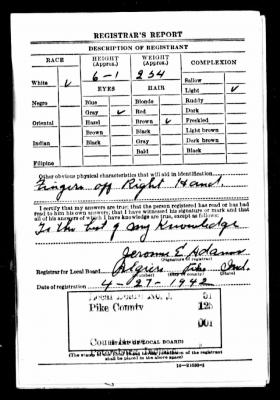 REGISTRAR'S REPORT
DESCRIPTION OF REGISTRANT
RACE HEIGHT (Approx.) WEIGHT (Approx.) COMPLEXION
White ✓ 6-1 234 Sallow
EYES HAIR Light ✓
Negro Blue Blonde Ruddy
Gray ✓ Red Dark
Oriental Hazel Brown ✓ Freckled
Brown Black Light brown
Indian Black Gray Dark brown
Bald Black
Filipino
Other obvious physical characteristics that will aid in identification
Fingers off Right Hand.
I certify that my answers are true; that the person registered has read or has had
read to him his own answers; that I have witnessed his signature or mark and that
all of his answers of which I have knowledge are true, except as follows:
To the best of my Knowledge
Jerome E Adams
(Signature of registrar)
Registrar for Local Board Pike Ind.
(Number) (City or county) (State)
Date of registration 4-27-1942
Local Board No. 1 51
Pike County 125
001
(STAMP OF LOCAL BOARD)
(The stamp of the Local Board of the registrant shall be placed in the above space)
16-21630-2